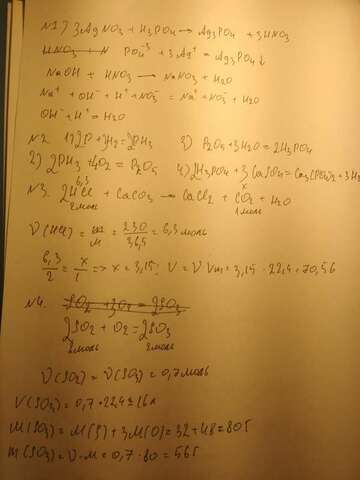 N1 1) 3AgNO₃ + H₃PO₄ → Ag₃PO₄ + 3HNO₃
HNO₃ + N PO₄⁻³ + 3Ag⁺ = Ag₃PO₄↓
NaOH + HNO₃ → NaNO₃ + H₂O
Na⁺ + OH⁻ + H⁺ + NO₃⁻ = Na⁺ + NO₃⁻ + H₂O
OH⁻ + H⁺ = H₂O
N2. 1) 2P + 3H₂ = 2PH₃ 3) P₂O₅ + 3H₂O = 2H₃PO₄
2) 2PH₃ + 4O₂ = P₂O₅ 4) 2H₃PO₄ + 3CaSO₄ = Ca₃(PO₄)₂ + 3H₂
6,3 x
N3. 2HCl + CaCO₃ → CaCl₂ + CO₂ + H₂O
2моль 1моль
ν(HCl) = m/M = 230/36,5 = 6,3 моль
6,3/2 = x/1 => x = 3,15; V = ν Vm = 3,15 · 22,4 = 70,56
N4. SO₂ + 3O₂ = 2SO₃
2SO₂ + O₂ = 2SO₃
2моль 2моль
ν(SO₂) = ν(SO₃) = 0,7 моль
V(SO₃) = 0,7 · 22,4 = 16л
M(SO₃) = M(S) + 3M(O) = 32 + 48 = 80г
m(SO₃) = ν · M = 0,7 · 80 = 56г